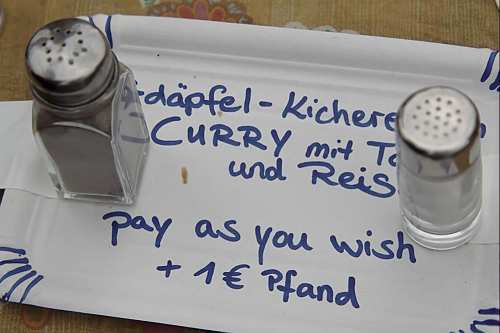 -däpfel-Kichere
CURRY mit To
und Reis
pay as you wish
+ 1€ Pfand